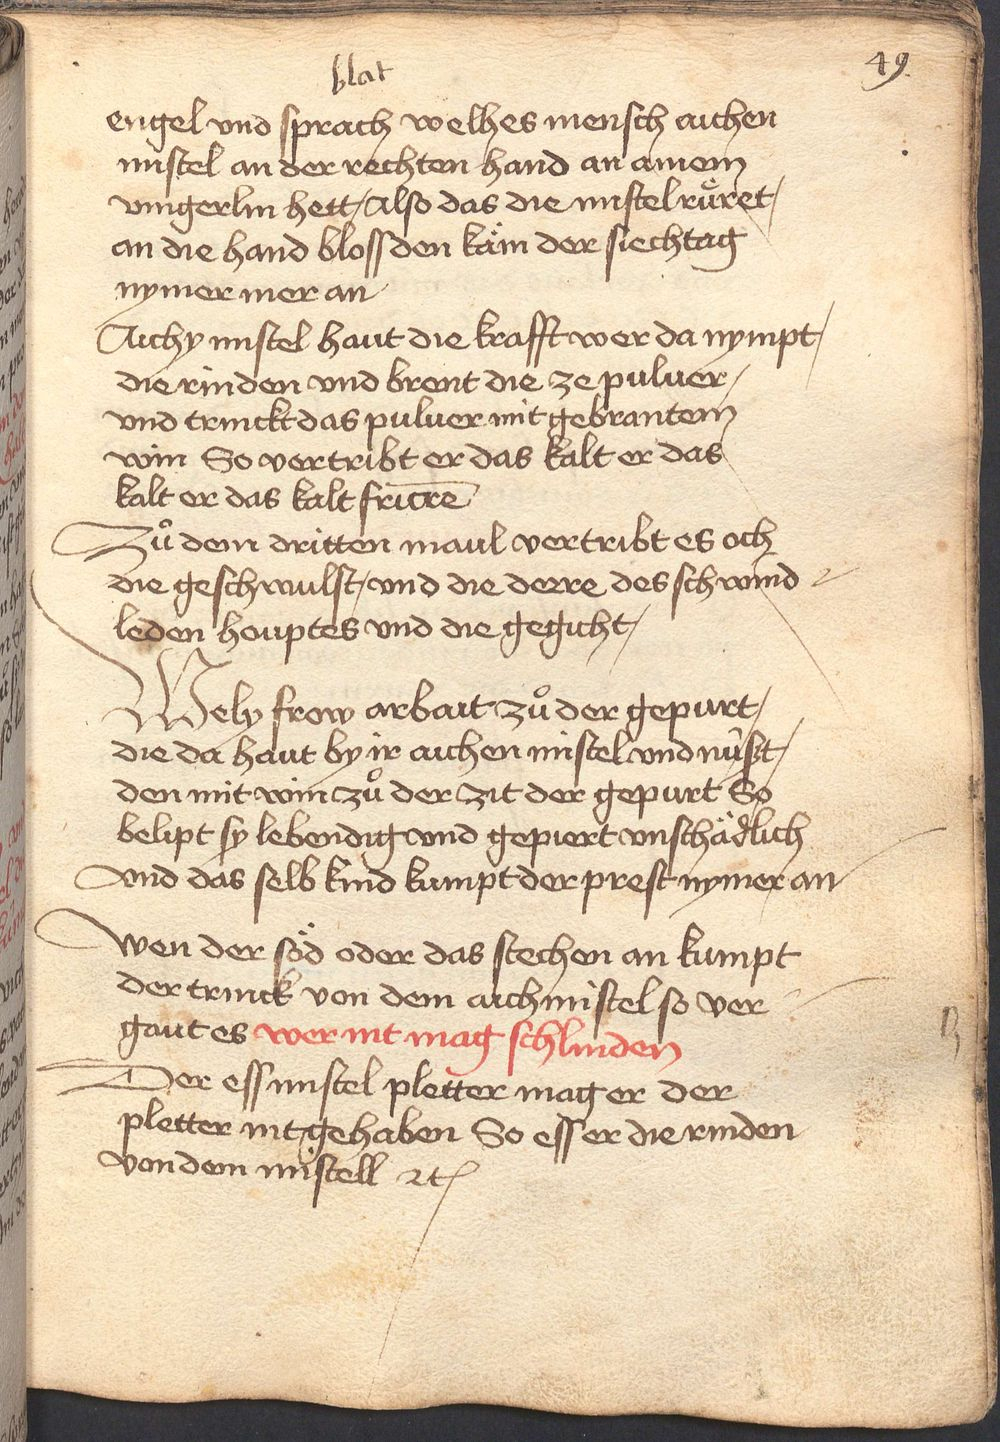 blat
49.
engel vnd sprach welhes mensch aichen
mistel an der rechten hand an ainem
vingerlin hett / Also das die mistel růret /
an die hand bloss den käm der siechtag
nymer mer an
Aichy mistel haut die krafft wer da nympt /
die rinden vnd brent die ze puluer /
vnd trinckt das puluer mit gebrantem
win So vertribt er das kalt er das
kalt er das kalt friere
Zů dem dritten maul vertribt es och
die geschwulst / vnd die derre des schwind
leden houptes vnd die gegicht /
Wely frow arbait zů der gepurt /
die da haut by ir aichen mistel vnd nüßt /
den mit win zů der zit der gepurt So
belipt sy lebendig vnd gepiert vnschädlich
vnd das selb kind kumpt der prest nymer an
Wen der söd oder das stechen an kumpt
der trinck von dem aichmistel so ver
gaut es wer nit mag schlinden
Der ess mistel pletter mag er der
pletter nit gehaben So ess er die rinden
von dem mistell ꝛc